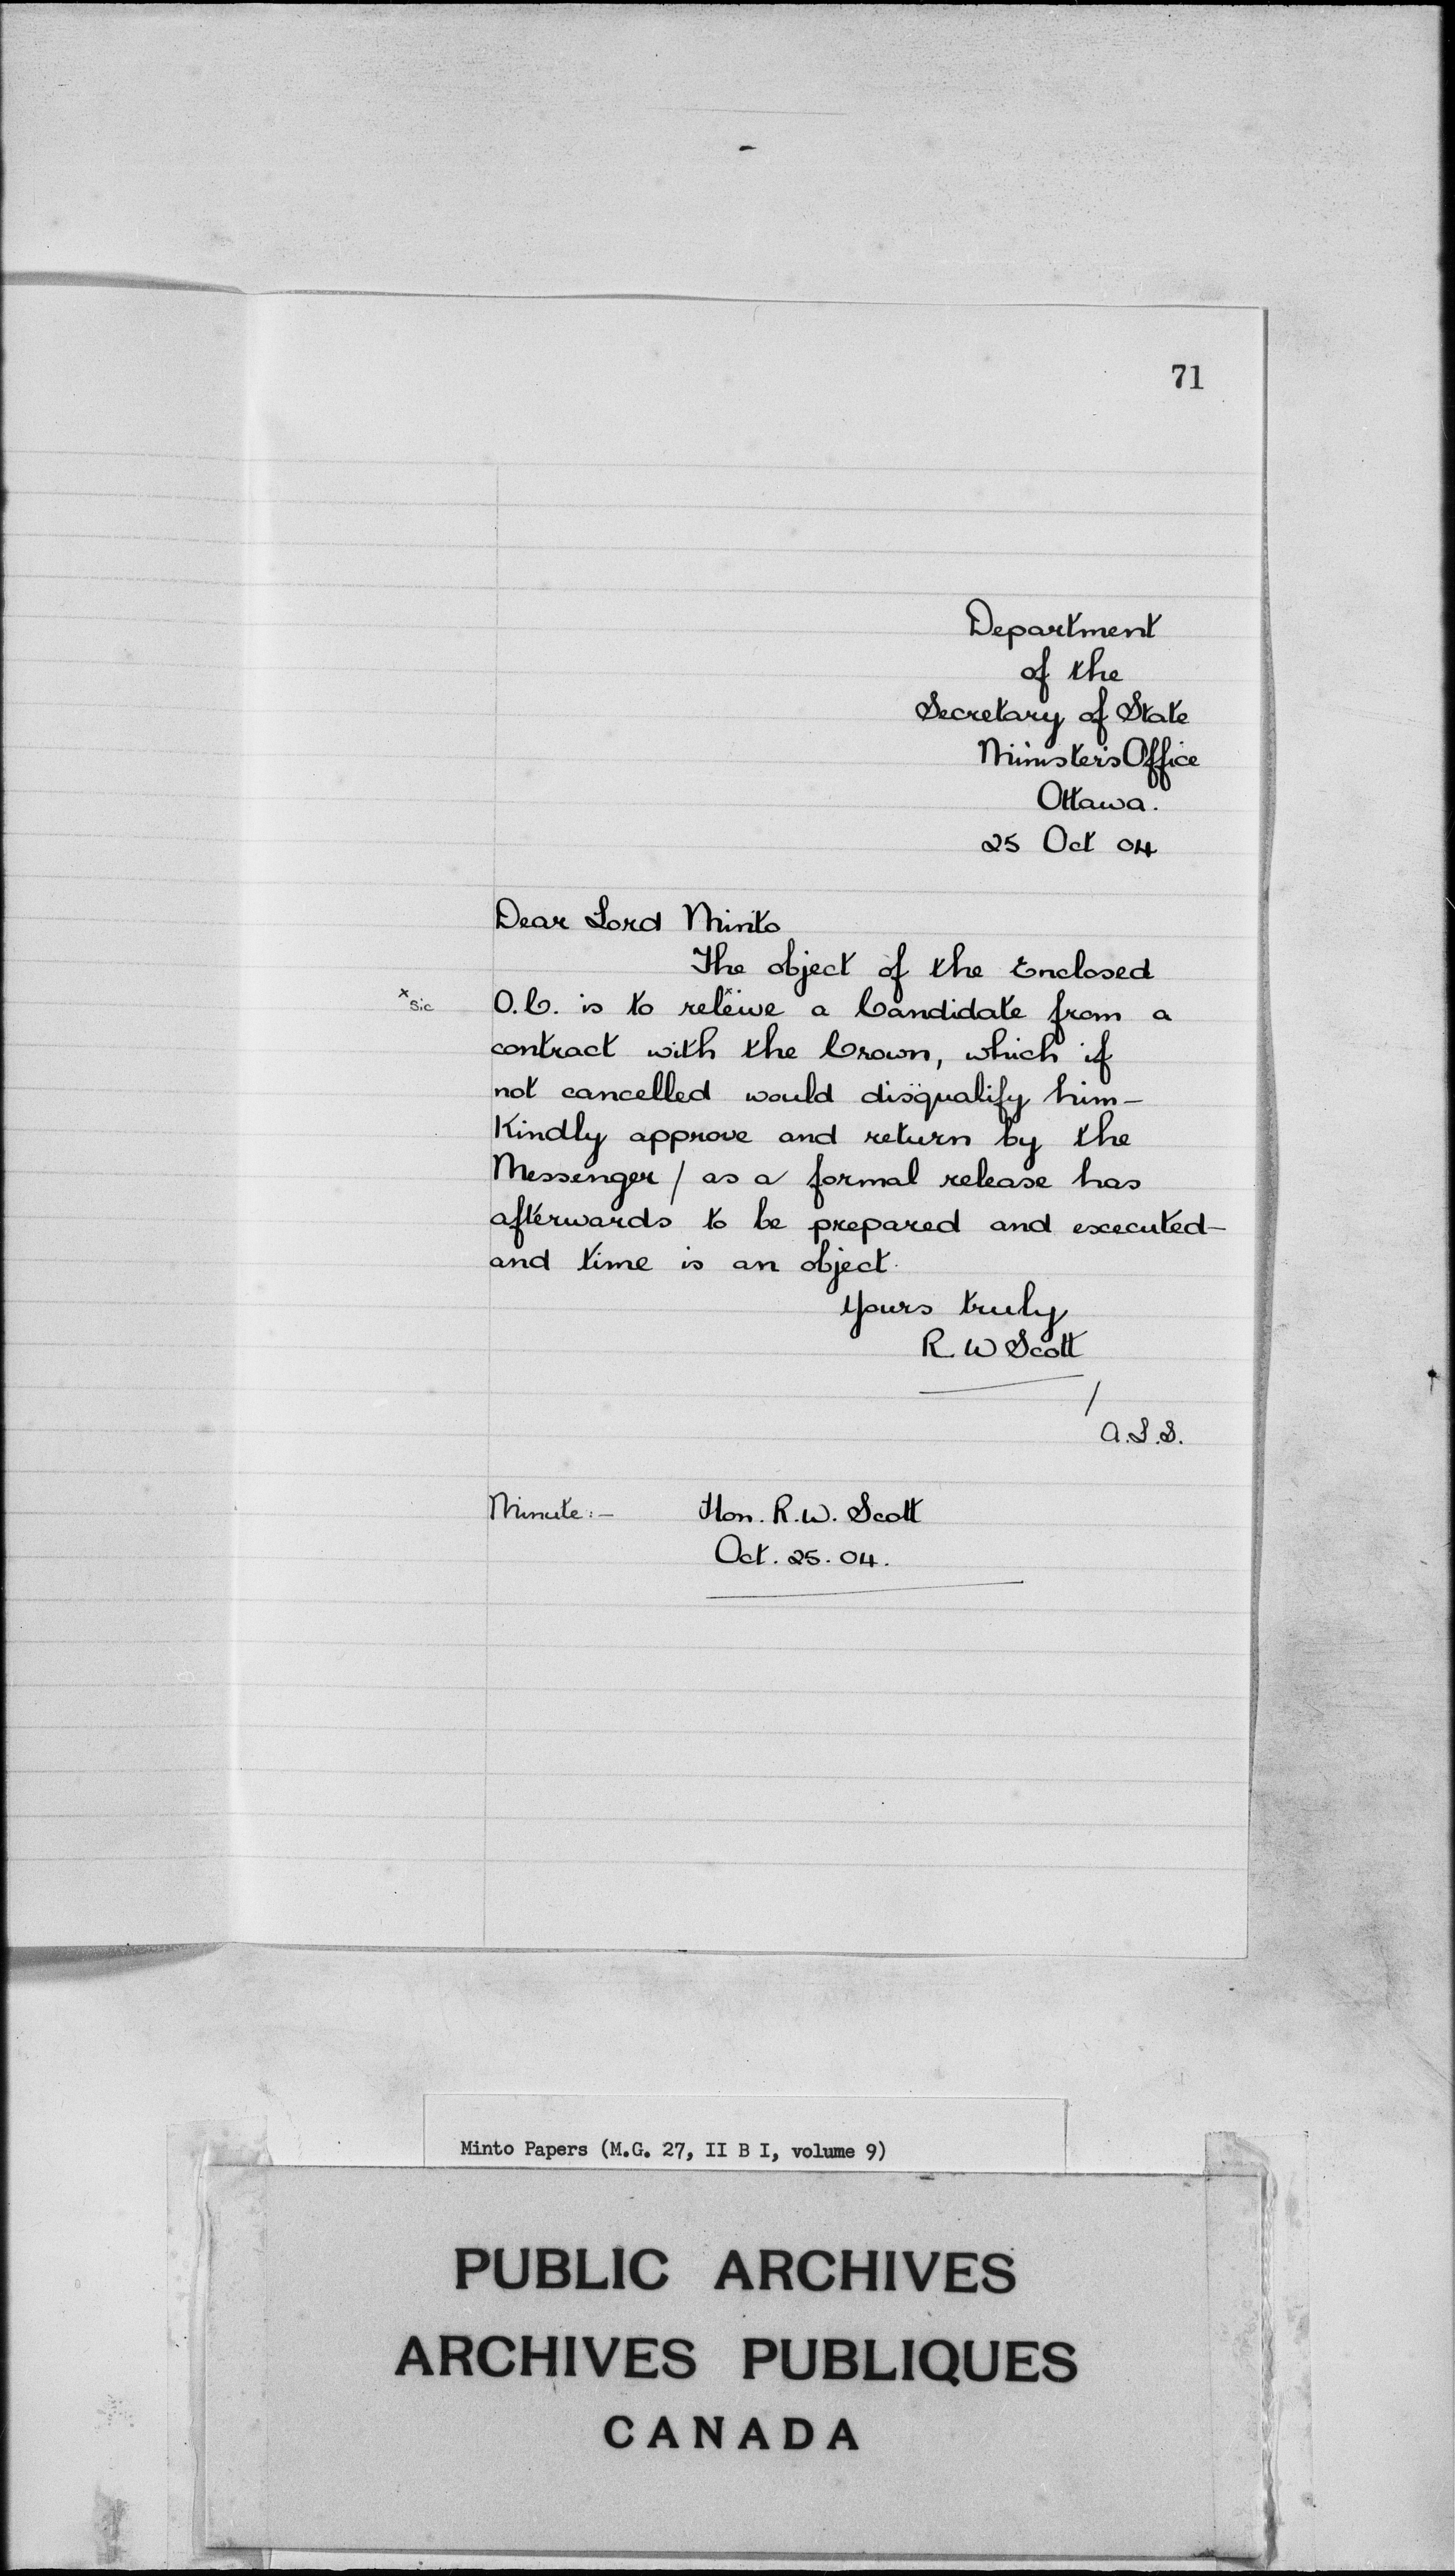 71
Department
of the
Secretary of State
Minister's Office
Ottawa.
25 Oct 04
Dear Lord Minto
The object of the Enclosed
x sic O.C. is to releive x a Candidate from a
contract with the Crown, which if
not cancelled would disqualify him—
Kindly approve and return by the
Messenger / as a formal release has
afterwards to be prepared and executed—
and time is an object.
Yours truly
R W Scott
/
A.L.S.
Minute:— Hon. R.W. Scott
Oct. 25. 04.
Minto Papers (M.G. 27, II B I, volume 9)
PUBLIC ARCHIVES
ARCHIVES PUBLIQUES
CANADA